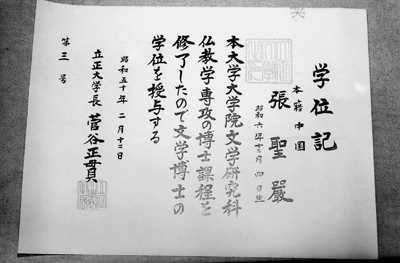 学位記
本籍 中国
張聖嚴
昭和六年十月四日生
本大学大学院文学研究科
仏教学専攻の博士課程を
修了したので文学博士の
学位を授与する
昭和五十年二月十二日
立正大学長 菅谷正貫
第三号